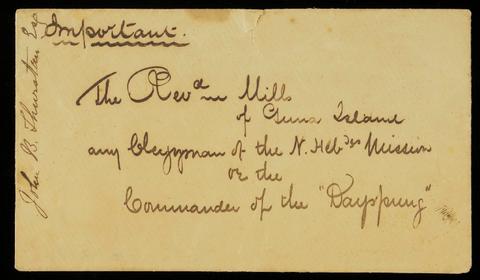 Important.
John B. Thurston Esq
The Revd Mr Mills
of Guna Island
any Clergyman of the N. Hebdes Mission
or the
Commander of the "Dayspring"